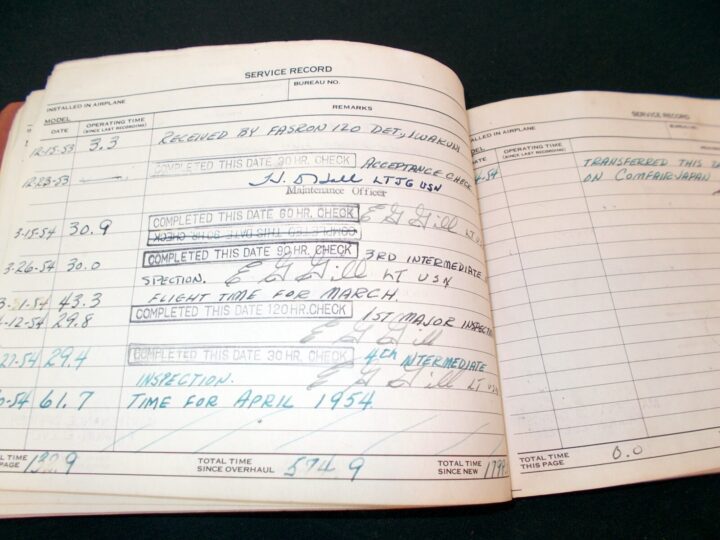 SERVICE RECORD
INSTALLED IN AIRPLANE
BUREAU NO.
MODEL
DATE OPERATING TIME (SINCE LAST RECORDING) REMARKS
12-15-53 3.3 RECEIVED BY FASRON 120 DET, IWAKUNI
12-23-53 — COMPLETED THIS DATE 30 HR. CHECK ACCEPTANCE CHECK
LTJG USN
Maintenance Officer
3-15-54 30.9 COMPLETED THIS DATE 60 HR. CHECK E G Gill LT US
COMPLETED THIS DATE 30 HR. CHECK
3-26-54 30.0 COMPLETED THIS DATE 90 HR. CHECK 3RD INTERMEDIATE
SPECTION. E G Gill LT USN
3-31-54 43.3 FLIGHT TIME FOR MARCH.
-12-54 29.8 COMPLETED THIS DATE 120 HR. CHECK 1ST MAJOR INSPECTI
E G Gill
-54 29.4 COMPLETED THIS DATE 30 HR. CHECK 4th INTERMEDIATE
INSPECTION. E G Gill LT USN
-54 61.7 TIME FOR APRIL 1954
AL TIME
PAGE
TOTAL TIME
SINCE OVERHAUL 574.9
TOTAL TIME
SINCE NEW
SERVICE RECORD
ALLED IN AIRPLANE
BUREAU NO.
DEL
ATE OPERATING TIME (SINCE LAST RECORDING)
-54 TRANSFERRED THIS
ON COMFAIRJAPAN
TOTAL TIME
THIS PAGE 0.0